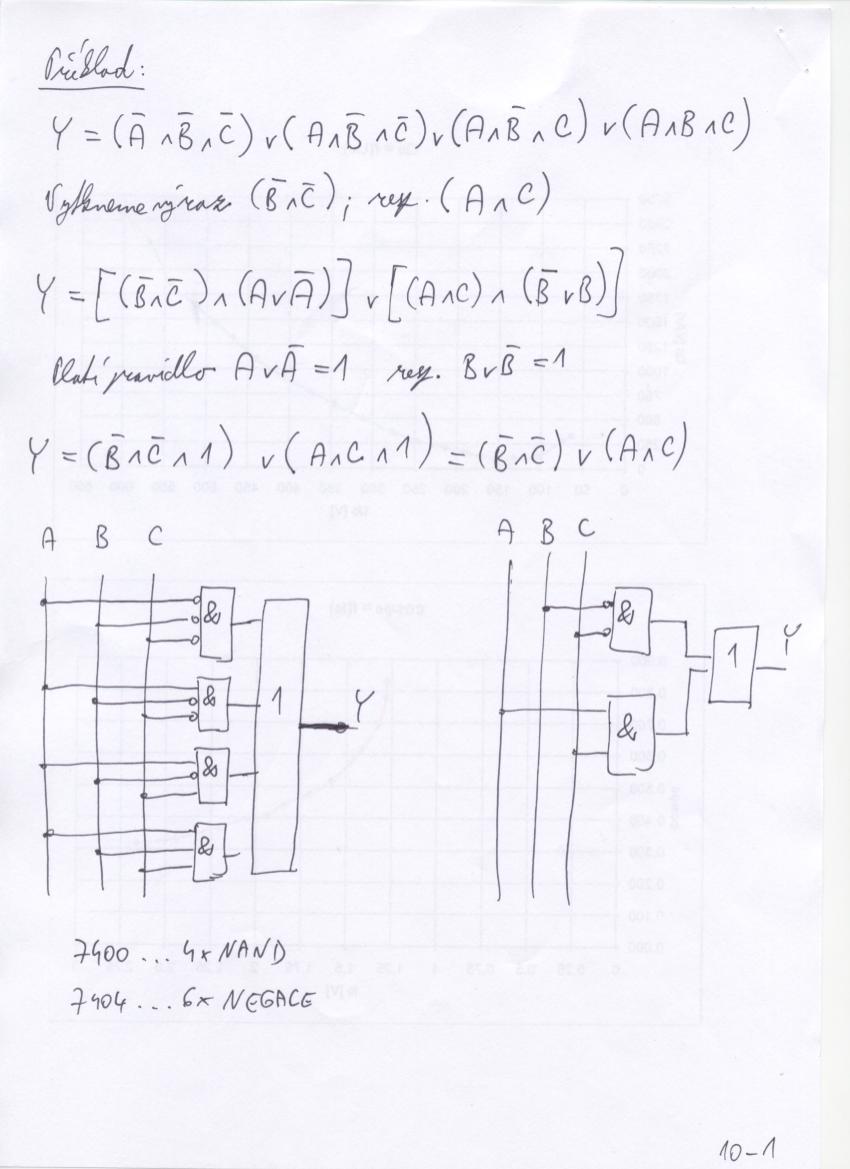 Příklad:
Y = (A̅ ∧ B̅ ∧ C̅) ∨ (A ∧ B̅ ∧ C̅) ∨ (A ∧ B̅ ∧ C) ∨ (A ∧ B ∧ C)
Vytkneme výraz (B̅ ∧ C̅); resp. (A ∧ C)
Y = [(B̅ ∧ C̅) ∧ (A ∨ A̅)] ∨ [(A ∧ C) ∧ (B̅ ∨ B)]
Platí pravidlo A ∨ A̅ = 1 resp. B ∨ B̅ = 1
Y = (B̅ ∧ C̅ ∧ 1) ∨ (A ∧ C ∧ 1) = (B̅ ∧ C̅) ∨ (A ∧ C)
A B C
&
&
&
&
1
Y
A B C
&
&
1
Y
7400 ... 4x NAND
7404 ... 6x NEGACE
10-1